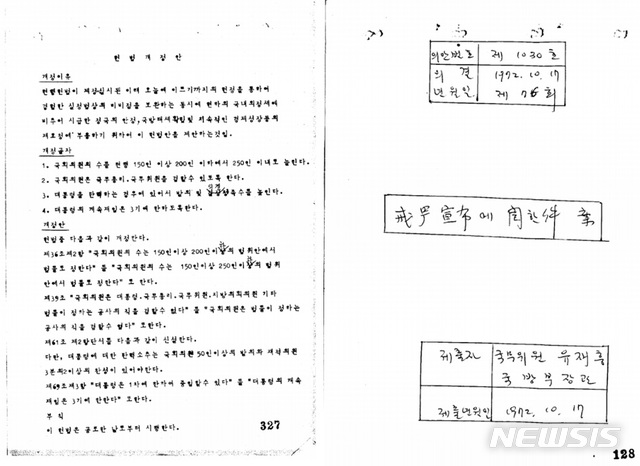 헌 법 개 정 안
개정이유
현행헌법이 제정실시된 이래 오늘에 이르기까지의 헌정을 통하여
경험한 실정법상의 미비점을 보완하는 동시에 현하의 국내외정세에
비추어 시급한 정국의 안정, 국방태세확립및 지속적인 경제성장등의
제요청에 부응하기 위하여 이 헌법안을 제안하는것임.
개정골자
1. 국회의원의 수를 현행 150인 이상 200인 이하에서 250인 이내로 늘린다.
2. 국회의원은 국무총리.국무위원을 겸할수 있도록 한다.
3. 대통령을 탄핵하는 경우에 있어서 발의 및 의결 수를 높인다.
4. 대통령의 계속재임은 3기에 한하도록한다.
개정안
헌법을 다음과 같이 개정한다.
제36조제2항 "국회의원의 수는 150인이상 200인이하의 범위안에서
법률로 정한다" 를 "국회의원의 수는 150인이상 250인이하의 범위
안에서 법률로 정한다" 로 한다.
제39조 "국회의원은 대통령.국무총리.국무위원.지방의회의원 기타
법률이 정하는 공사의 직을 겸할수 없다" 를 "국회의원은 법률이 정하는
공사의 직을 겸할수 없다" 로한다.
제61조 제2항단서를 다음과 같이 신설한다.
다만, 대통령에 대한 탄핵소추는 국회의원 50인이상의 발의와 재적의원
3분의2이상의 찬성이 있어야한다.
제69조제3항 "대통령은 1차에 한하여 중임할수 있다" 를 "대통령의 계속
재임은 3기에 한한다" 로한다.
부 칙
이 헌법은 공포한 날로부터 시행한다.
327
의안번호 제 1030 호
의 결 1972. 10. 17
년월일 제 76 회
戒嚴宣布에 関한件 案
제출자 국무위원 유재흥
국방부장관
제출년월일 1972. 10. 17
NEWSIS
128